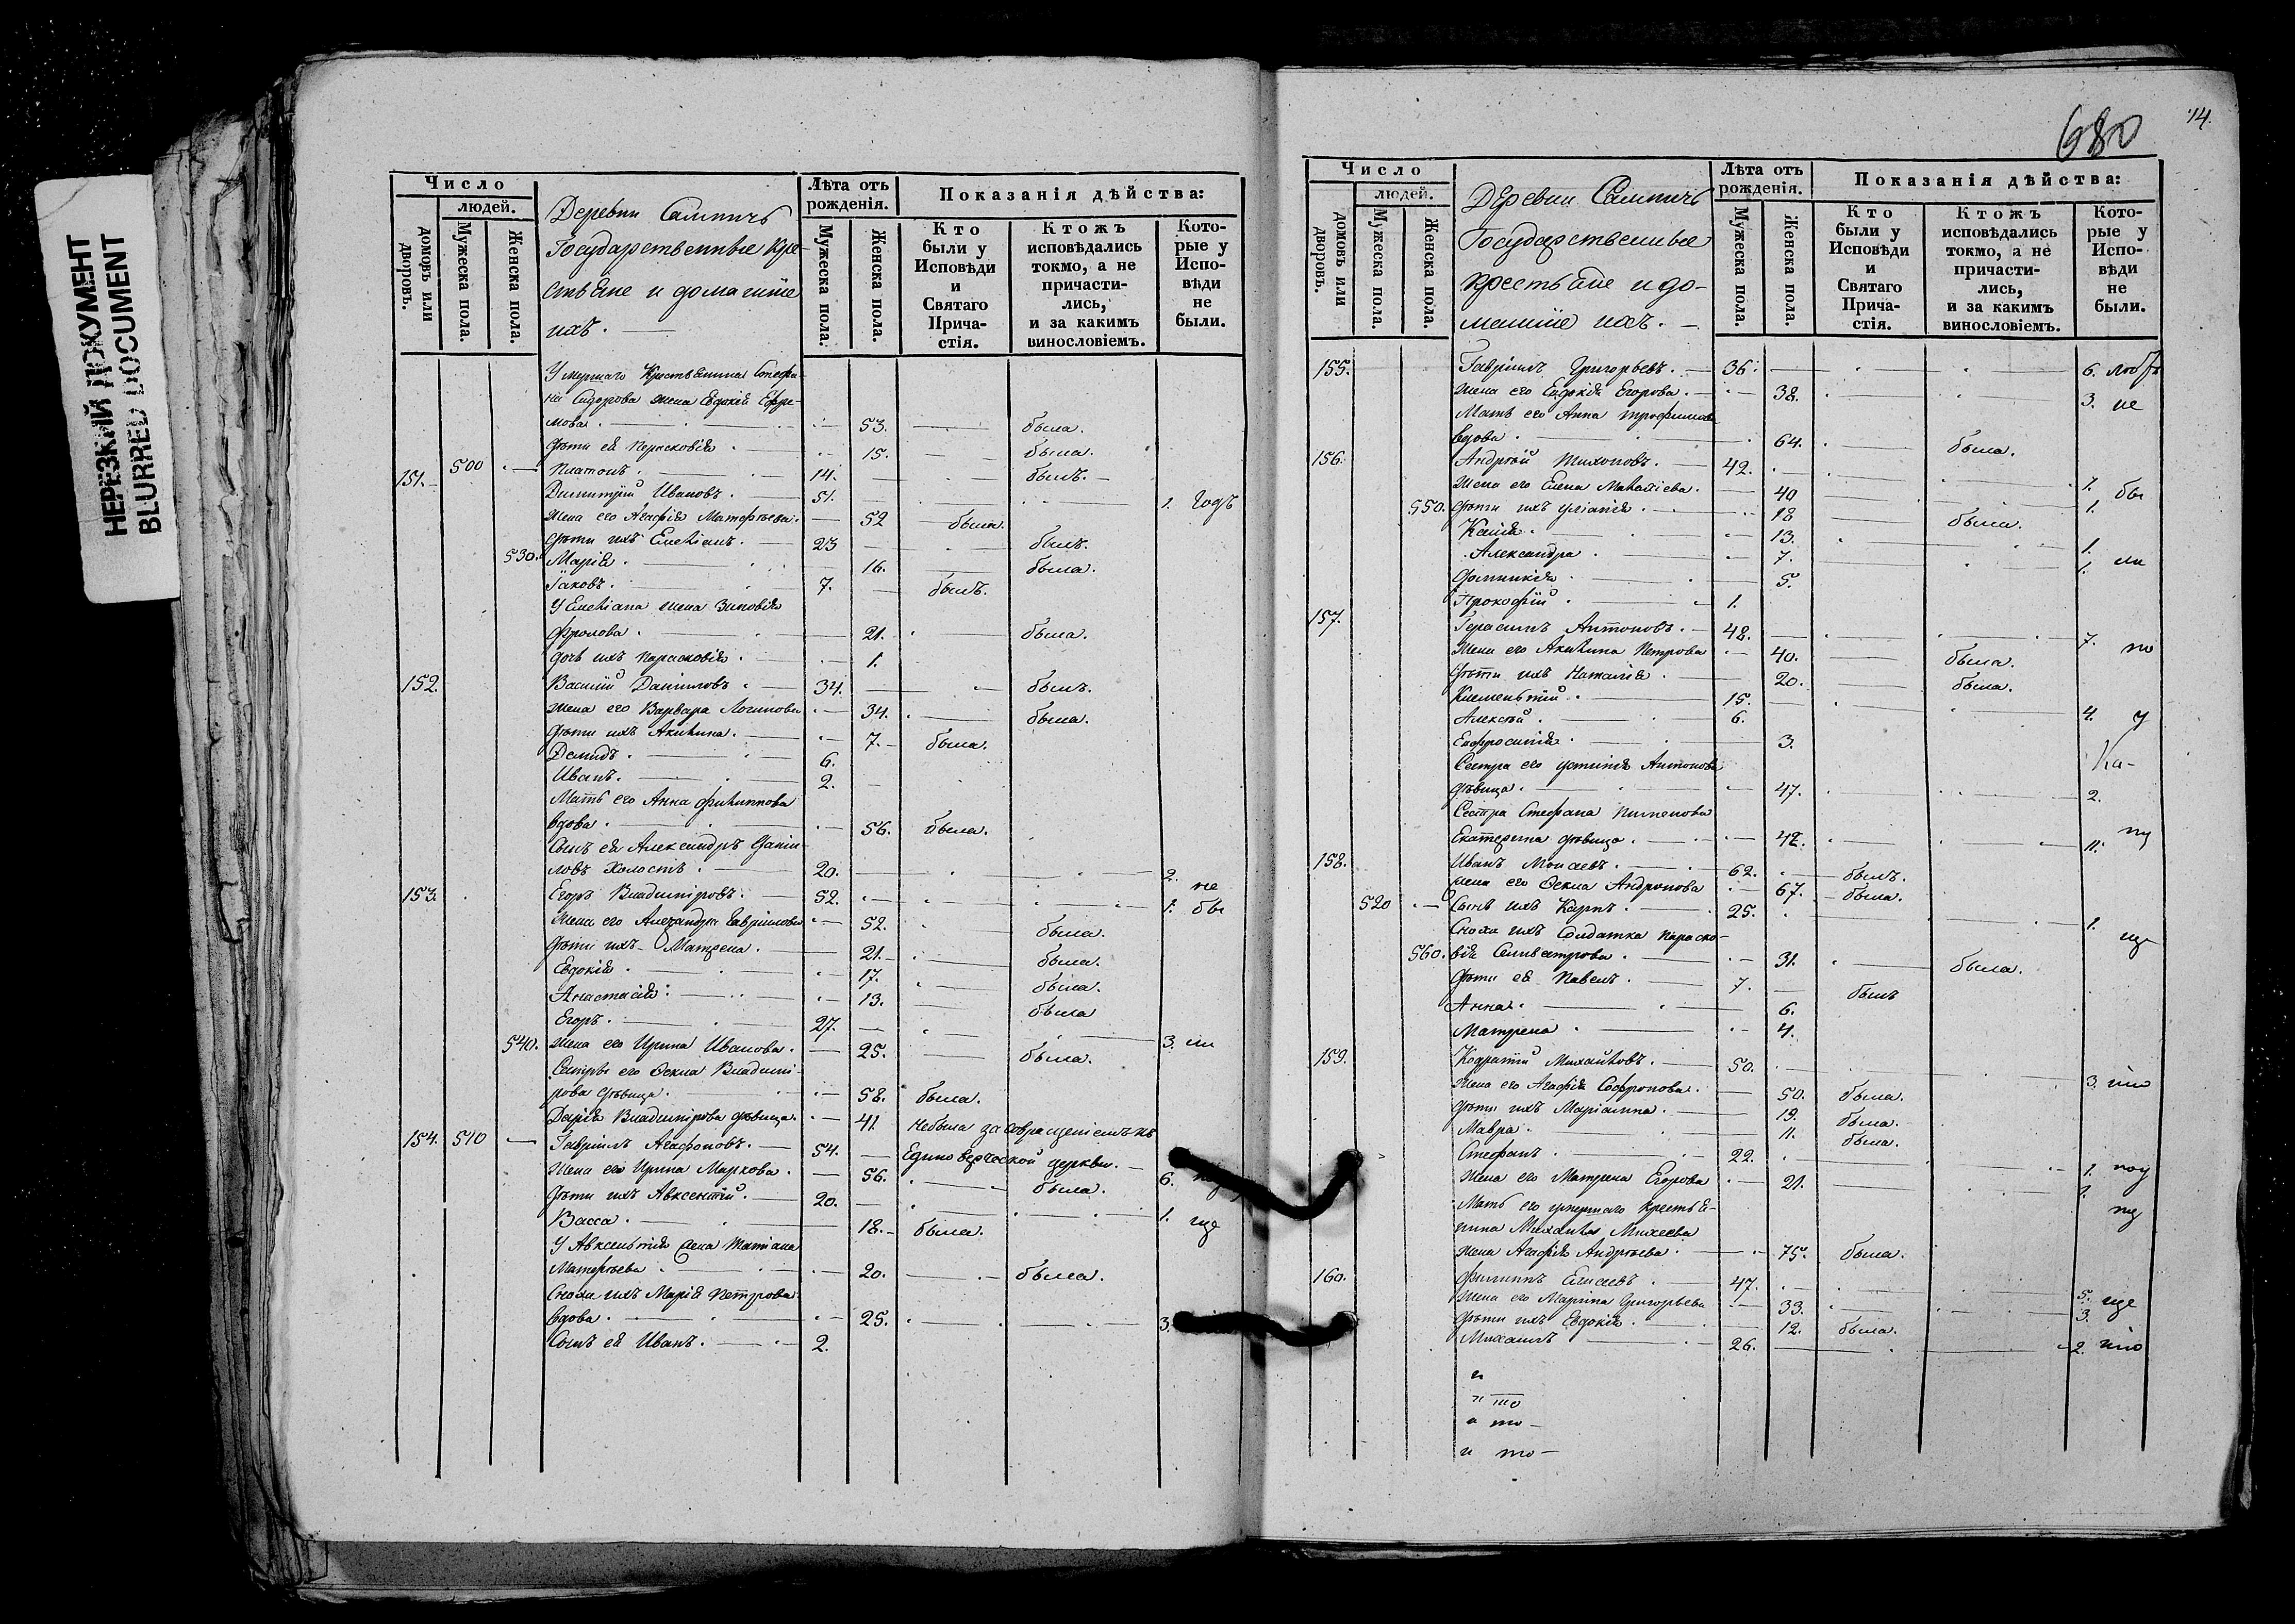 НЕРЕЗКИЙ ДОКУМЕНТ
BLURRED DOCUMENT
Число
людей.
домовъ или дворовъ.
Мужеска пола.
Женска пола.
Деревни
Государственные кре-
стьяне и домашніе
ихъ.
Лѣта отъ рожденія.
Мужеска пола.
Женска пола.
Показанія дѣйства:
Кто были у Исповѣди и Святаго Причастія.
Ктожъ исповѣдались токмо, а не причастились, и за какимъ винословіемъ.
Которые у Исповѣди не были.
Умершаго Крестьянина Стефа-
на Сидорова жена Евдокія Ефре-
мова. 53. была.
дѣти ея Парасковія 15. была.
500 Платонъ. 14. былъ.
151. Димитрій Ивановъ. 51. 1. годъ
жена его Агафія Матфѣева. 52 была.
дѣти ихъ Емеліанъ. 23 былъ.
530. Марія. 16. была.
Іаковъ. 7. былъ.
У Емеліана жена Зиновія
Фролова. 21. была.
дочь ихъ Парасковія. 1.
152. Василій Даниловъ. 34. былъ.
жена его Варвара Логинова 34. была.
дѣти ихъ Акилина. 7. была.
Демидъ. 6.
Иванъ. 2.
Мать его Анна Филиппова
вдова. 56. была.
Сынъ ея Александръ Дани-
ловъ холостъ. 20. 2. не
153. Егоръ Владиміровъ. 52. 1. бы
жена его Александра Гавріилова 52. была.
дѣти ихъ Матрена. 21. была.
Евдокія. 17. была.
Анастасія. 13. была
Егоръ. 27. 3. ли
540. жена его Ирина Иванова. 25. была.
Сестры его Фекла Владими-
рова дѣвица. 58. была.
Дарія Владимірова дѣвица. 41. не была за совращеніемъ къ
154. 510 Гавріилъ Агафоновъ. 54. Единоверческой церкви. 6.
жена его Ирина Маркова. 56. была.
дѣти ихъ Авксентій. 20. 1. ще
Васса. 18. была.
У Авксентія жена Татіана
Матфѣева. 20. была.
Сноха ихъ Марія Петрова
вдова. 25. 3.
Сынъ ея Иванъ. 2.
680
14.
Число
людей.
домовъ или дворовъ.
Мужеска пола.
Женска пола.
Деревни
Государственные
крестьяне и до-
машніе ихъ.
Лѣта отъ рожденія.
Мужеска пола.
Женска пола.
Показанія дѣйства:
Кто были у Исповѣди и Святаго Причастія.
Ктожъ исповѣдались токмо, а не причастились, и за какимъ винословіемъ.
Которые у Исповѣди не были.
155. Гавріилъ Григорьевъ. 36. 6.
жена его Евдокія Егорова. 38. 3. не
Мать его Анна Трофимова
вдова. 64. была.
156. Андрей Тихоновъ. 42. 7. бы
жена его Елена 40 1.
550. дѣти ихъ Уліанія. 18 была.
13. 1.
Александра. 7. 1. ли
5.
Прокофій 1.
157. Герасимъ Антоновъ. 48. 7. по
жена его Акилина Петрова 40. была.
дѣти ихъ Наталія. 20. была.
Климентій. 15. 4. у
Алексѣй. 6.
Евфросинія. 3.
Сестра его Устинія Антонова Ка-
дѣвица. 47. 2.
Сестра Стефана Пименова
Екатерина дѣвица. 11.
158. Иванъ 62. былъ.
жена его Фекла Андронова 67. была.
520 Сынъ ихъ Карпъ. 25. 1. ще
Сноха ихъ Солдатка Параско-
560. вія Селивестрова. 31. была.
дѣти ея Павелъ. 7. былъ
Анна. 6.
Матрена. 4.
159. Кодратій Михайловъ. 50. 3.
жена его Агафія Софронова. 50. была.
дѣти ихъ Маріанна. 19. была.
Мавра. 11. была.
Стефанъ. 22. 1.
жена его Матрена Егорова 21. 1.
Мать его умершаго крестья-
нина Михаила Михеева
жена Агафія Андрѣева. 75. была.
160. Филиппъ Елисеевъ. 47. 5. ще
жена его Марина Григорьева 33. 3.
дѣти ихъ Евдокія. 12. была.
Михаилъ 26. 2.
и
и то
и то-
и то-